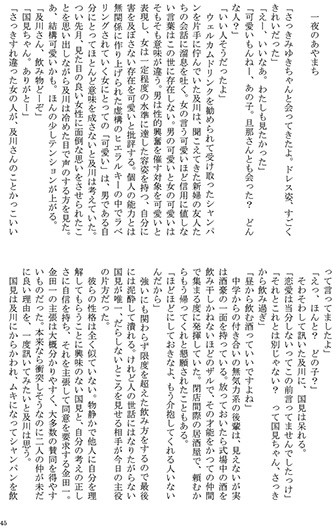 一夜のあやまち
「さっきみゆきちゃんと会ってきたよ。ドレス姿、すごく
きれいだった」
「えー！いいなぁ、わたしも見たかった」
「可愛いもんねぇ、あの子。旦那さんとも会った？　どん
な人？」
「いい人そうだったよ」
ウェルカムドリンクを勧められて受け取ったシャンパン
を片手に佇んでいた及川は、聞こえてきた新婦の友人た
ちの会話に溜息を吐く。女の言う可愛いほど信用に値しな
い言葉はこの世に存在しない。男の可愛いと女の可愛いは
そもそも意味が違う。男は性的興奮を催す対象を可愛いと
表現し、女は一定程度の水準に達した容姿を持つ、自分に
害を及ぼさない存在を可愛いと批評する。個人の能力とは
無関係に作り上げられた虚構のヒエラルキーの中でラベ
リングされていく女にとっての「可愛い」は、男である自
分にとってほとんど意味を成さないと及川は考えていた。
つい先月、見た目の良い女性に面倒な思いをさせられたこ
とを思い出しながら及川は冷めた目で声のする方を見た。
あ、結構可愛いかも。ほんの少しテンションが上がる。
「及川さん、飲み物どーぞ」
「国見ちゃん、ありがとー」
「さっきすれ違った女の人が、及川さんのことかっこいい
って言ってましたよ」
「えっ、ほんと？　どの子？」
そわそわして訊いた及川に、国見は呆れる。
「恋愛は当分しないってこの前言ってませんでしたっけ」
「それとこれとは別じゃない？　って国見ちゃん、さっき
から飲み過ぎ」
「昼から飲む酒っていいですよね」
中学からの付き合いの無気力系の後輩は、見えないが実
は酒豪の一面を持っている。放っておいたら式場中の酒を
飲み干しかねないザルっぷりで、その才能をかつての仲間
で集まる度に発揮していた。閉店間際の居酒屋で、頼むか
らもう帰ってくれと懇願されたこともある。
「ほどほどにしておきなよ。もう介抱してくれる人いない
んだから」
強いにも関わらず限度を超えた飲み方をするので最後
には泥酔して潰れる。けれど人の世話にはなりたがらない
国見が唯一、だらしないところを見せる相手が今日の主役
の片方だった。
彼らの性格は全く似ていない。物静かで他人に自分を理
解してもらうことに興味のない国見と、自分の考えの正し
さに自信を持ち、それを主張して同意を要求する金田一。
金田一の主張は大概分かりやすく、大多数の賛同を得やす
いものだった。本来なら衝突しそうなのに二人の仲が未だ
に良い理由を、一度訊いてみたいと及川は思う。
国見は及川にからかわれ、ムキになってシャンパンを飲
45